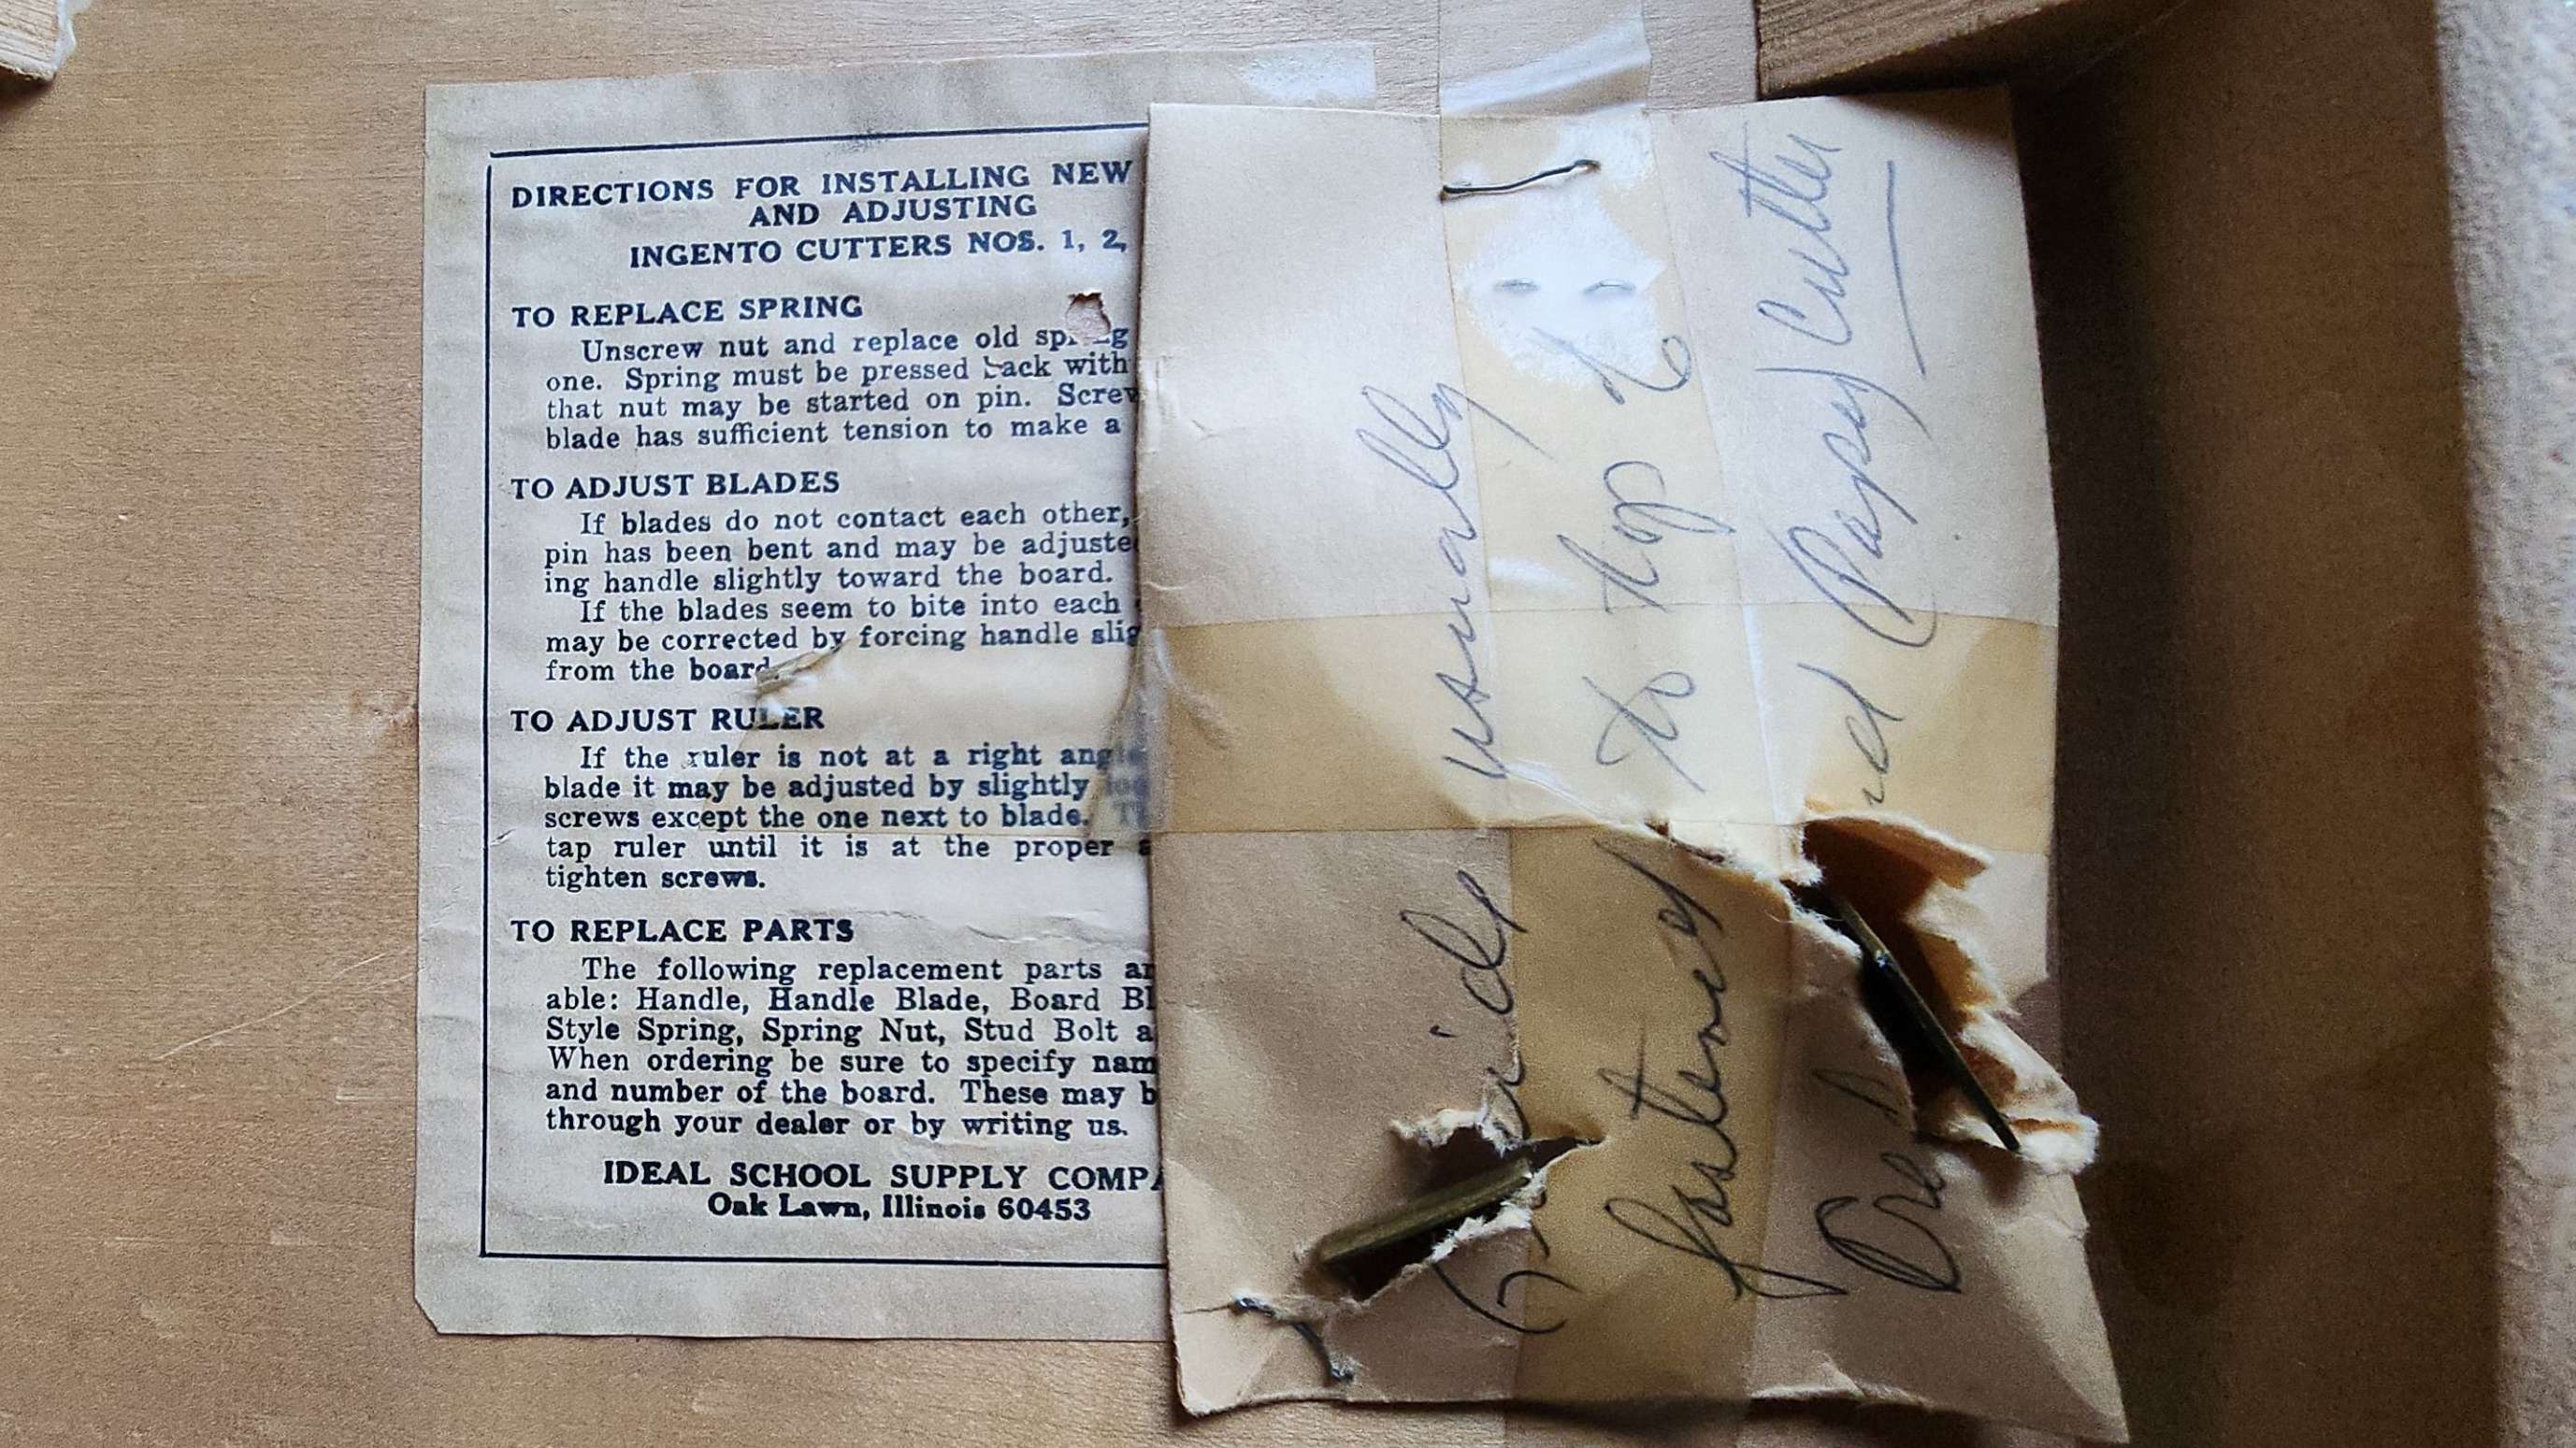 DIRECTIONS FOR INSTALLING NEW
AND ADJUSTING
INGENTO CUTTERS NOS. 1, 2,
TO REPLACE SPRING
Unscrew nut and replace old
one. Spring must be pressed back with
that nut may be started on pin. Screw
blade has sufficient tension to make a
TO ADJUST BLADES
If blades do not contact each other,
pin has been bent and may be adjuste
ing handle slightly toward the board.
If the blades seem to bite into each
may be corrected by forcing handle slig
from the board
TO ADJUST RULER
If the ruler is not at a right angle
blade it may be adjusted by slightly
screws except the one next to blade.
tap ruler until it is at the proper
tighten screws.
TO REPLACE PARTS
The following replacement parts ar
able: Handle, Handle Blade, Board Bl
Style Spring, Spring Nut, Stud Bolt a
When ordering be sure to specify nam
and number of the board. These may b
through your dealer or by writing us.
IDEAL SCHOOL SUPPLY COMPA
Oak Lawn, Illinois 60453
usually
fastened to top
Paper Cutter